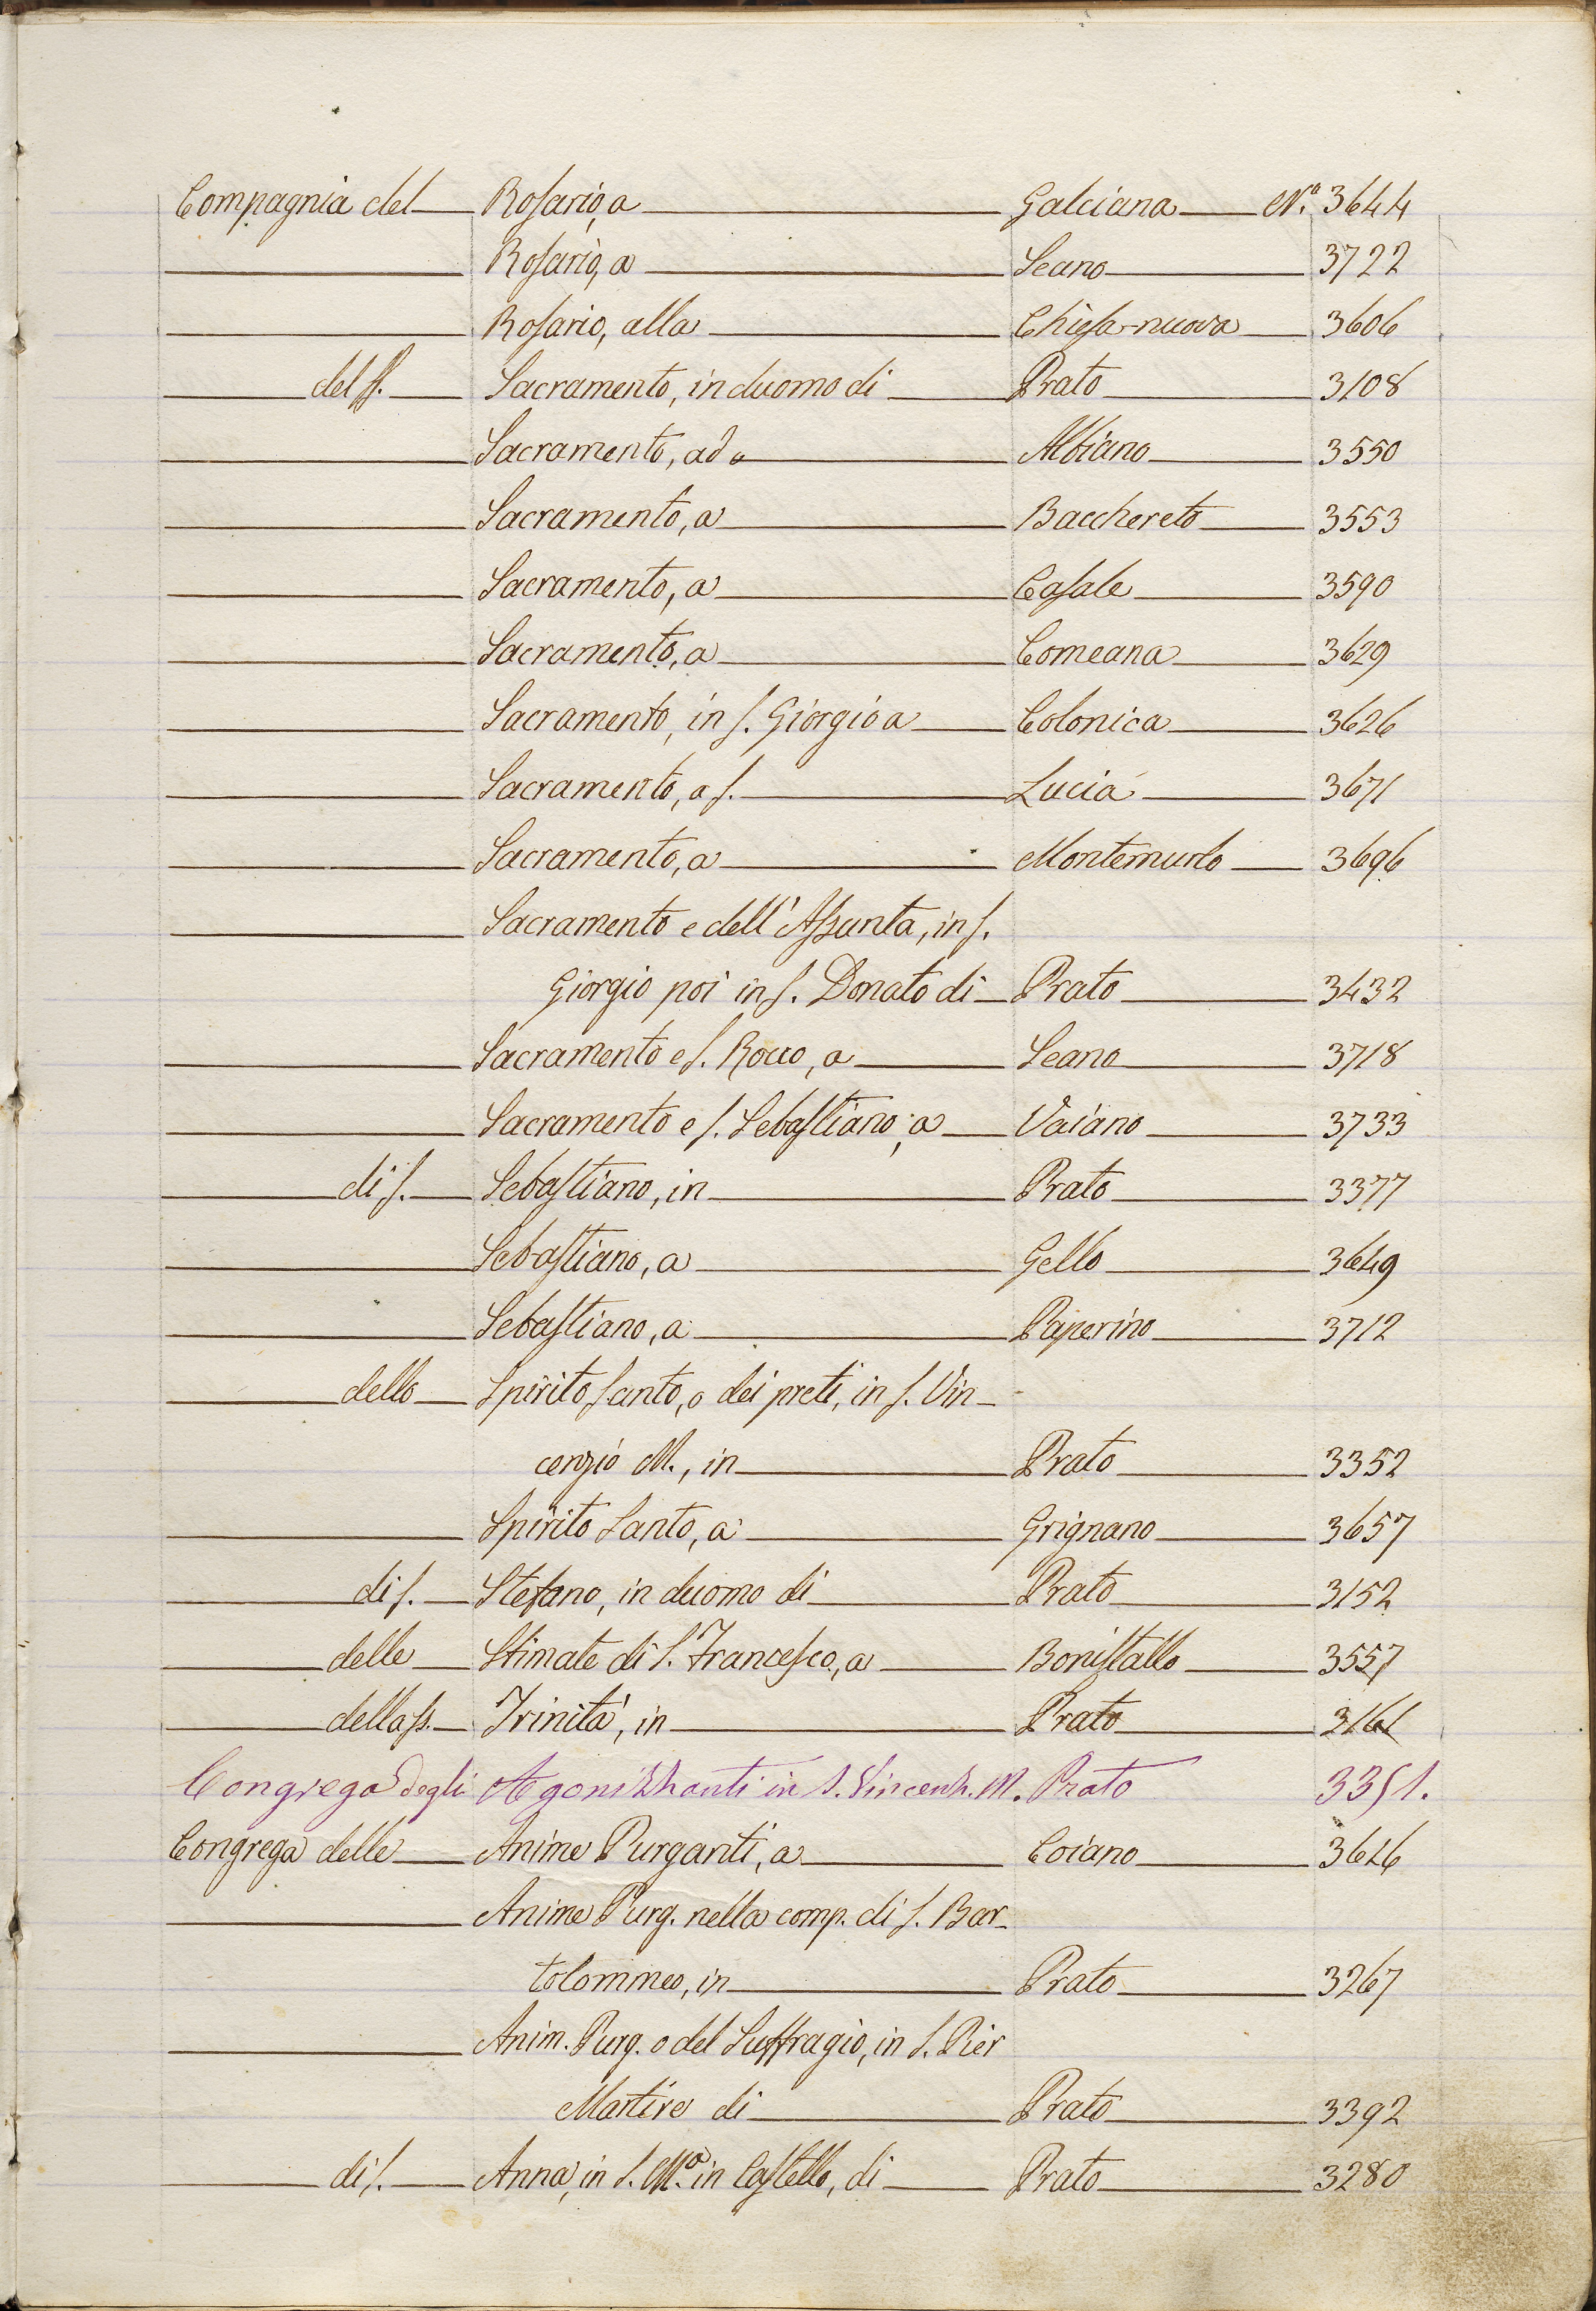 Compagnia del Rosario, a Galciana N.° 3644
Rosario, a Seano 3722
Rosario, alla Chiesa-nuova 3606
del SS. Sacramento, in duomo di Prato 3108
Sacramento, ad Albiano 3550
Sacramento, a Bacchereto 3553
Sacramento, a Casale 3590
Sacramento, a Comeana 3629
Sacramento, in S. Giorgio a Colonica 3626
Sacramento, a S. Lucia 3671
Sacramento, a Montemurlo 3696
Sacramento e dell'Assunta, in S.
Giorgio poi in S. Donato di Prato 3432
Sacramento e S. Rocco, a Seano 3718
Sacramento e S. Sebastiano, a Vaiano 3733
di S. Sebastiano, in Prato 3377
Sebastiano, a Gello 3649
Sebastiano, a Paperino 3712
dello Spirito Santo, o dei preti, in S. Vin-
cenzio M., in Prato 3352
Spirito Santo, a Grignano 3657
di S. Stefano, in duomo di Prato 3152
delle Stimate di S. Francesco, a Bonistallo 3557
della SS. Trinità, in Prato 3161
Congrega degli Agonizzanti in S. Vincenz. M. Prato 3351.
Congrega delle Anime Purganti, a Coiano 3616
Anime Purg. nella comp. di S. Bar-
tolommeo, in Prato 3267
Anim. Purg. o del Suffragio, in S. Pier
Martire di Prato 3392
di S. Anna, in S. M.a in Castello, di Prato 3280